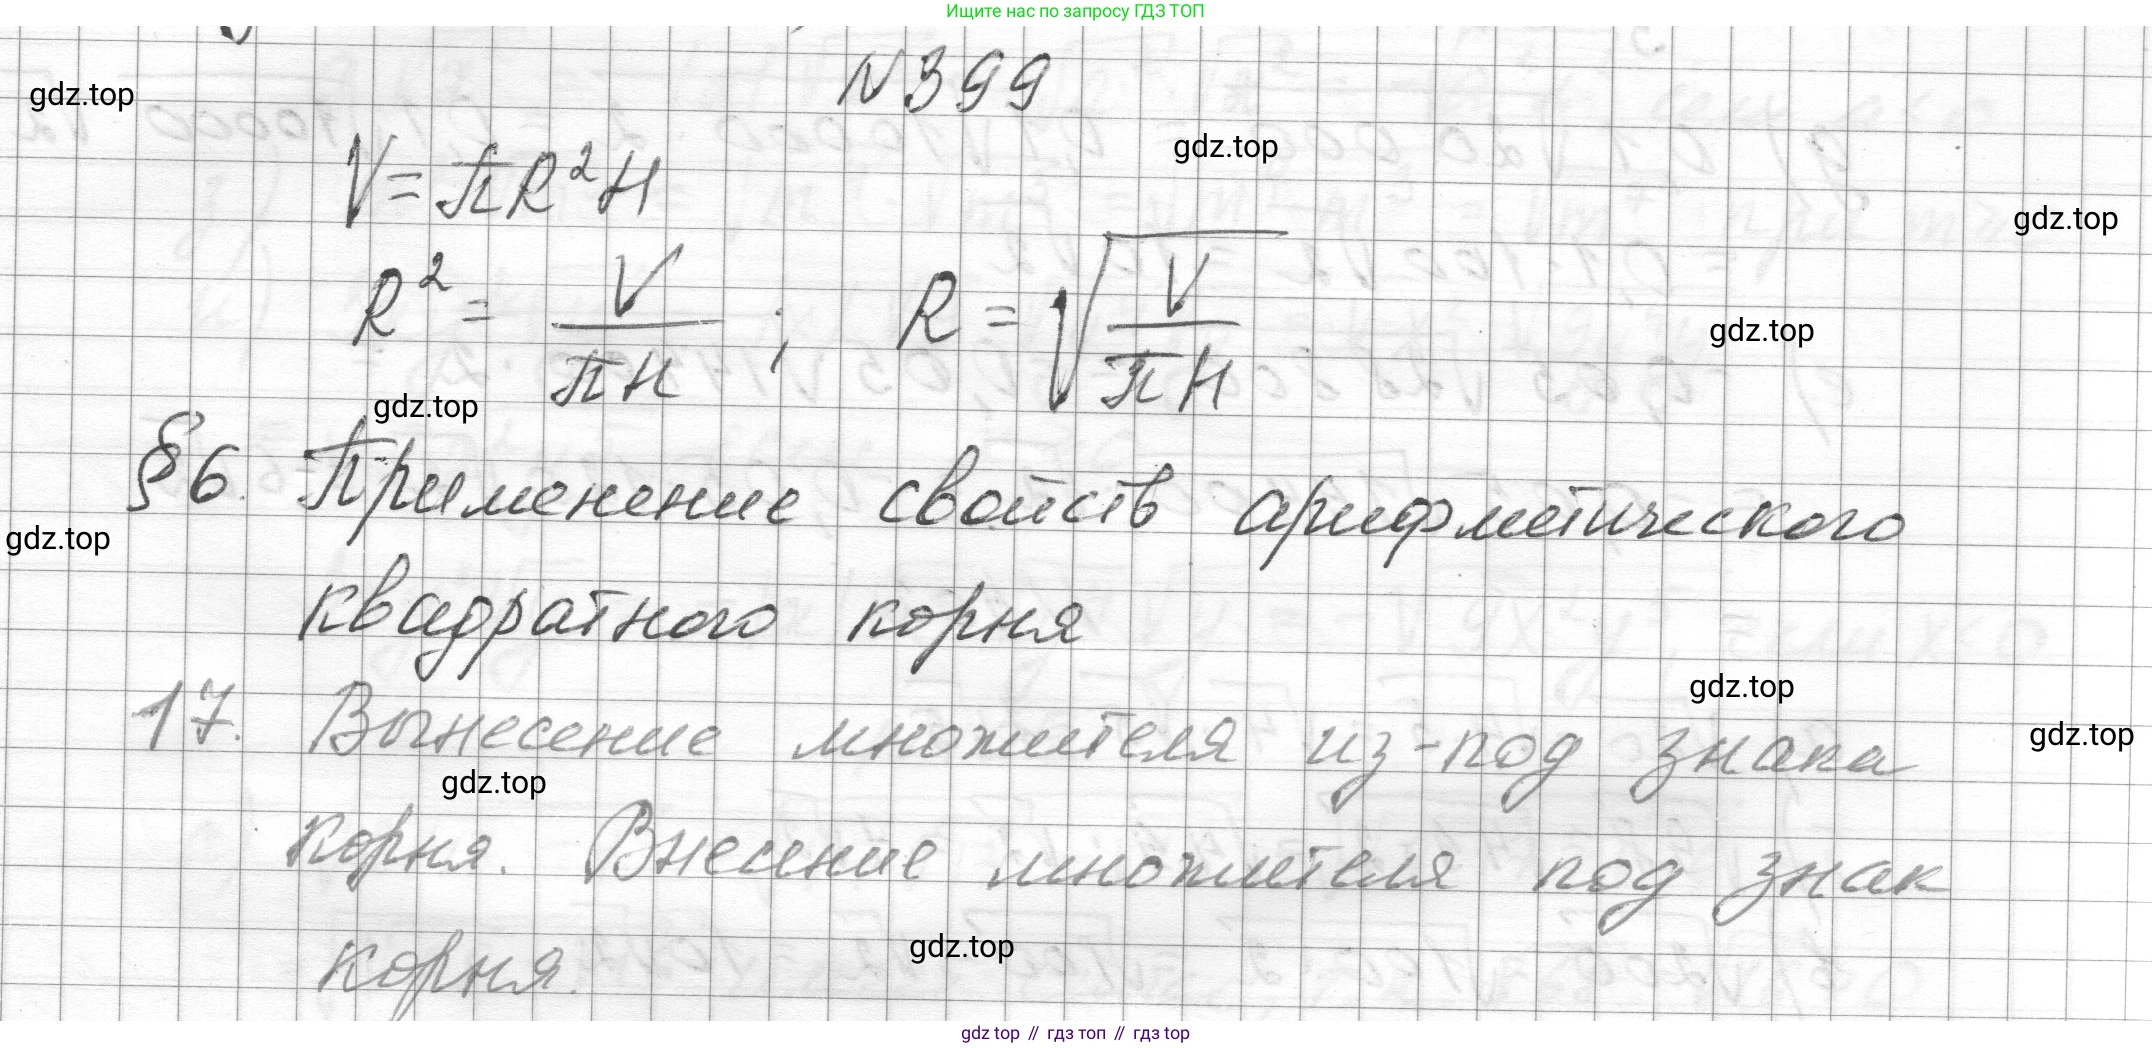 Ищите нас по запросу ГДЗ ТОП
N 399
gdz.top
gdz.top
V = πR²H
gdz.top
R² = V/(πH) ; R = √(V/(πH))
gdz.top
gdz.top
§6. Применение свойств арифметического
gdz.top
квадратного корня
gdz.top
17. Вынесение множителя из-под знака
gdz.top
gdz.top
корня. Внесение множителя под знак
gdz.top
корня.
gdz.top // гдз топ // гдз top